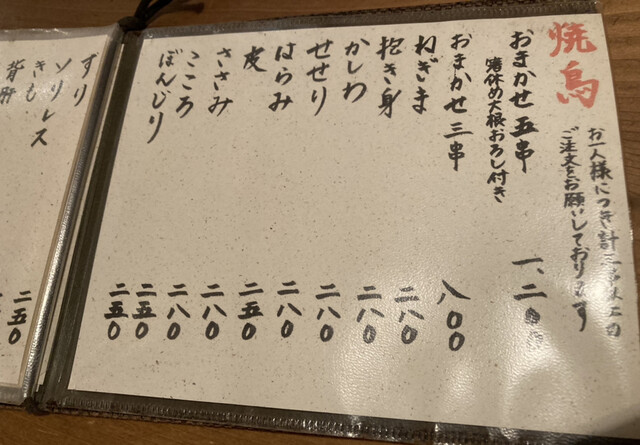 焼鳥
お一人様につき計三串以上の
ご注文をお願いしております
おまかせ五串 一、二00
箸休め大根おろし付き
おまかせ三串 八00
ねぎま 二八0
抱き身 二八0
かしわ 二八0
せせり 二八0
はらみ 二五0
皮 二八0
ささみ 二八0
こころ 二五0
ぼんじり 二五0
ずり 二五0
ソリレス
きも
背肝